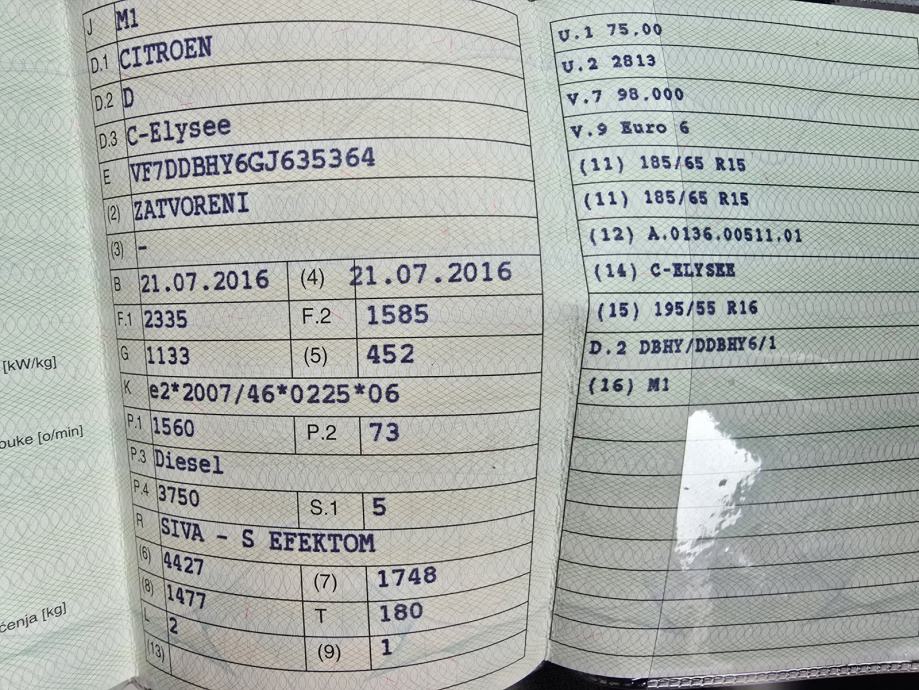 J M1
D.1 CITROEN
D.2 D
D.3 C-Elysee
E VF7DDBHY6GJ635364
(2) ZATVORENI
(3) -
B 21.07.2016 (4) 21.07.2016
F.1 2335 F.2 1585
G 1133 (5) 452
K e2*2007/46*0225*06
P.1 1560 P.2 73
P.3 Diesel
P.4 3750 S.1 5
R SIVA - S EFEKTOM
(6) 4427 (7) 1748
(8) 1477 T 180
L 2 (9) 1
(13)
[kW/kg]
ouke [o/min]
ćenja [kg]
U.1 75,00
U.2 2813
V.7 98,000
V.9 Euro 6
(11) 185/65 R15
(11) 185/65 R15
(12) A.0136.00511.01
(14) C-ELYSEE
(15) 195/55 R16
D.2 DBHY/DDBHY6/1
(16) M1